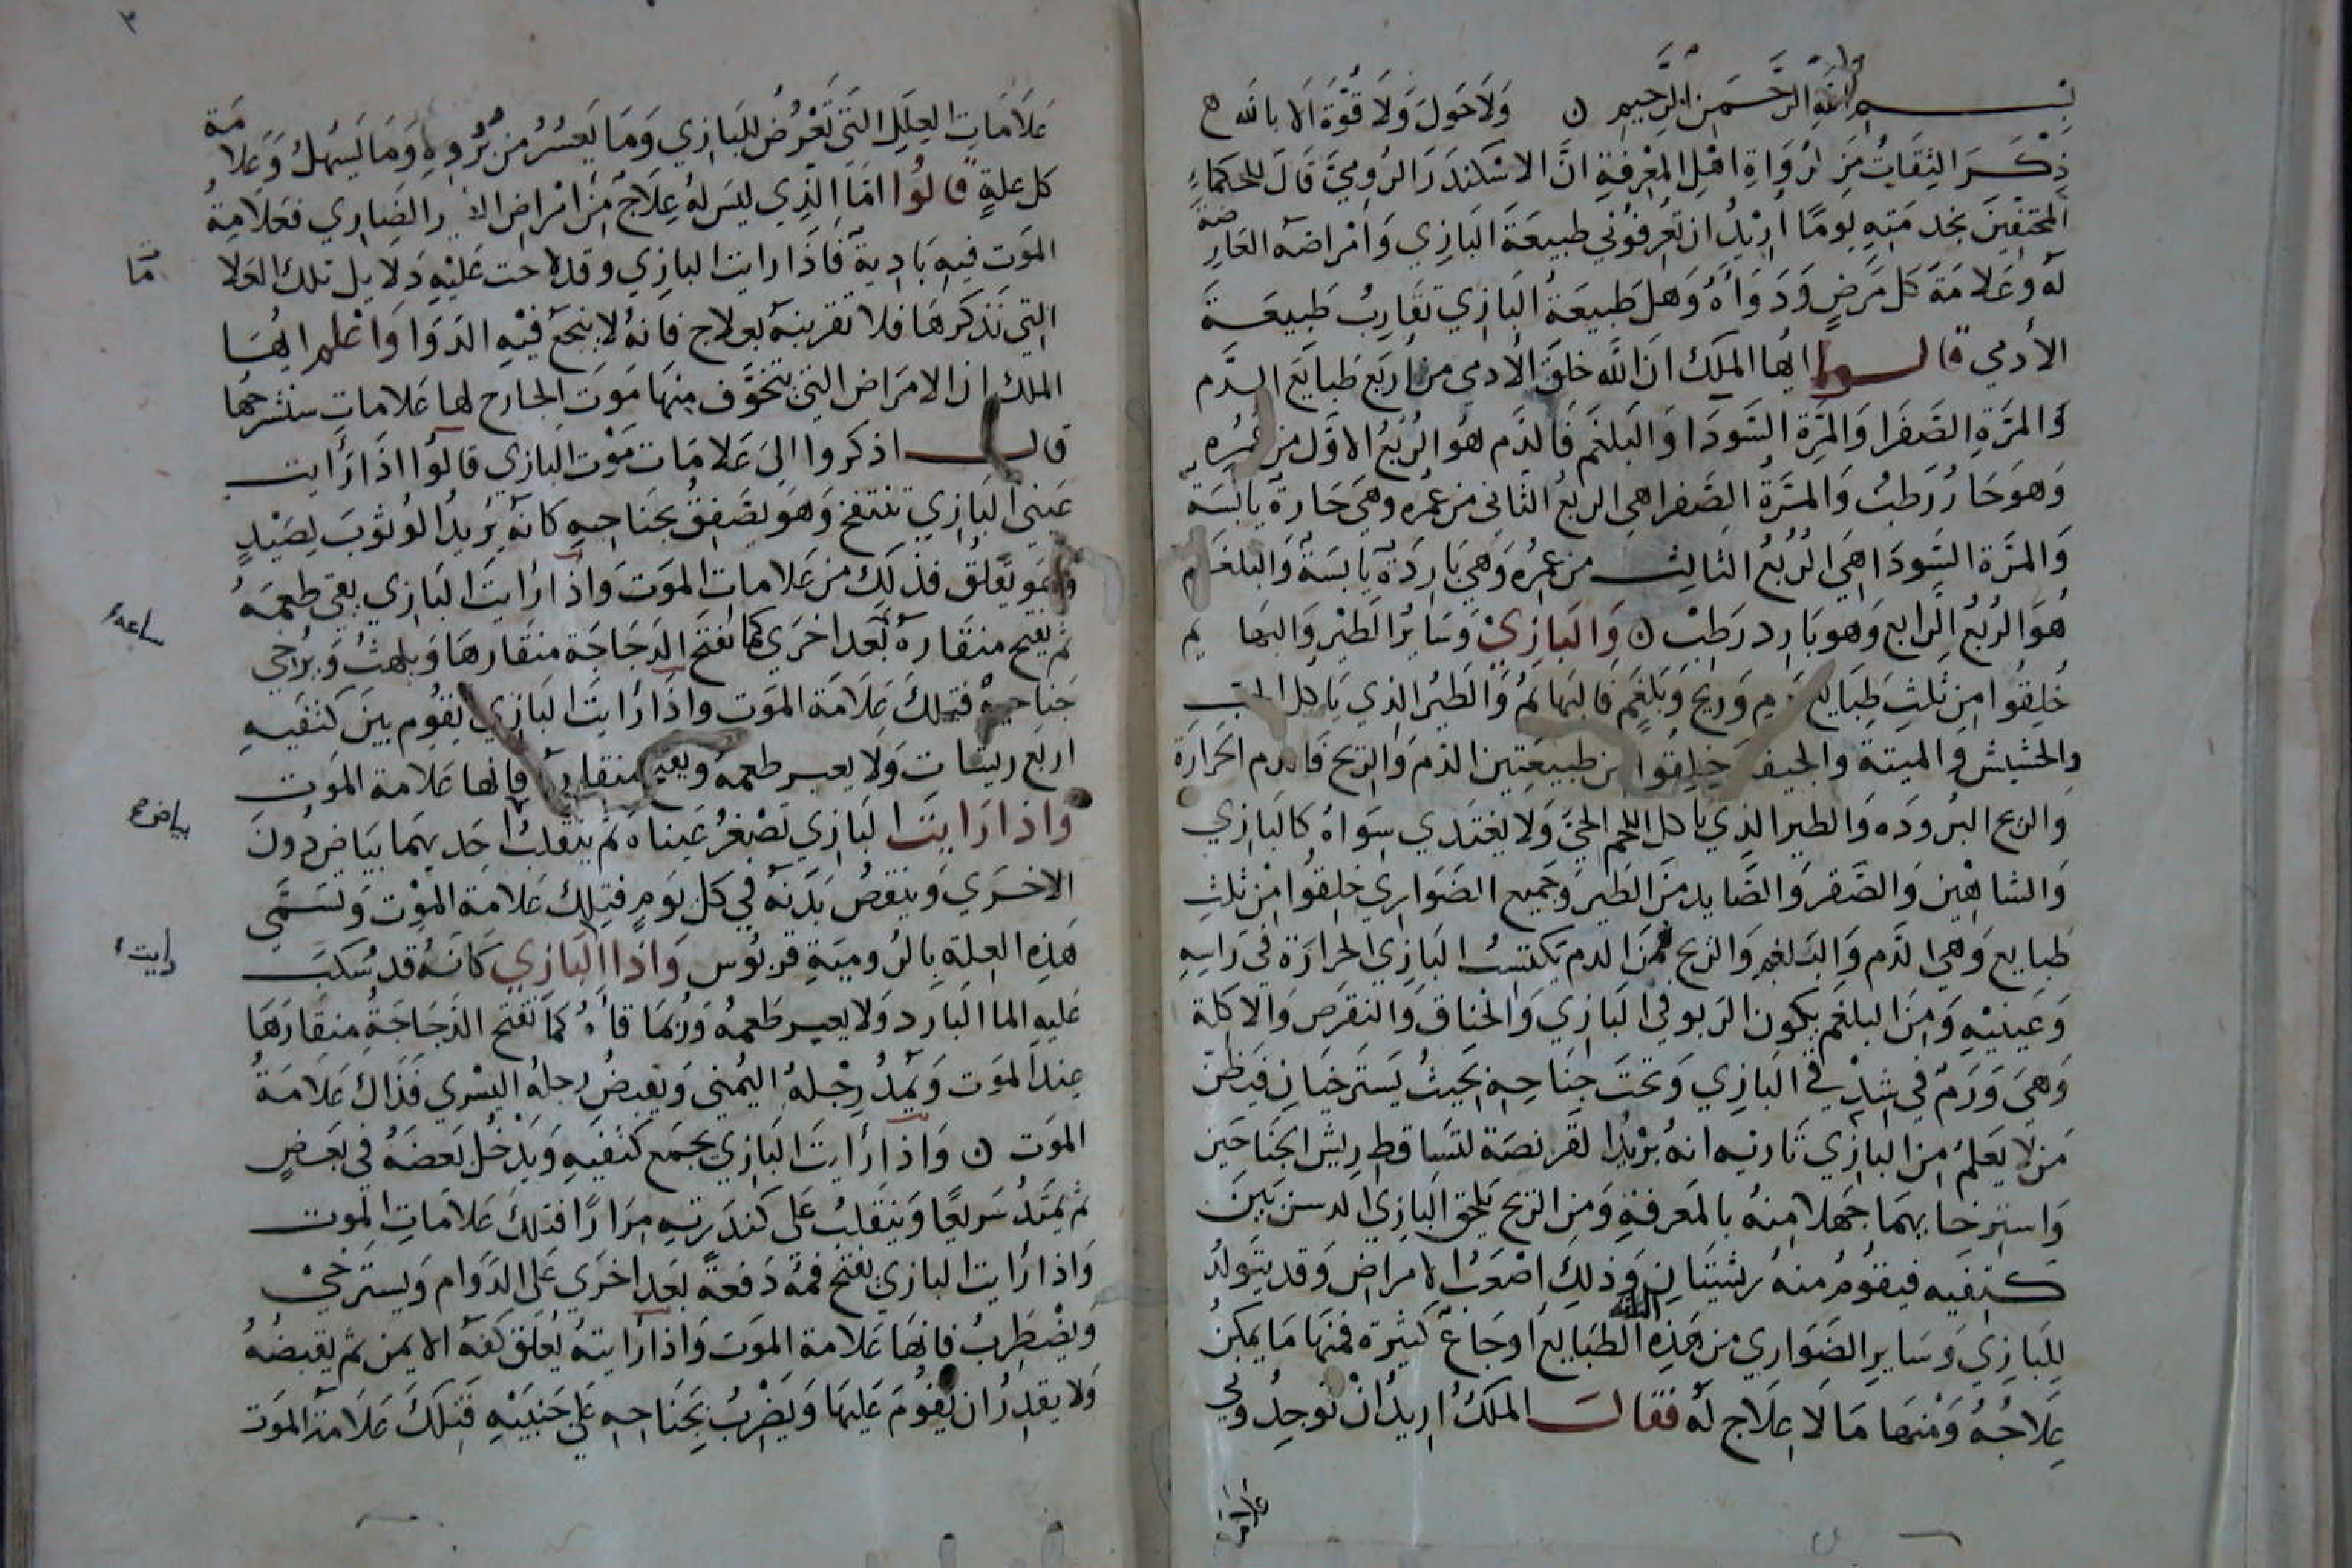 بِسْمِ اللهِ الرَّحْمَنِ الرَّحِيمِ ۞ وَلَا حَوْلَ وَلَا قُوَّةَ الا بالله
ذِكْرَ الثِقَاتُ مِنَ الرُوَاةِ اهْلِ المَعْرِفَةِ انَّ الاسْكَندَرَ الرُومِيَّ قَالَ للحكماءِ
المحتفينَ بخدمَتِهِ يومًا اُرِيْدُ ان تعَرِفوُني طبيعَةَ البَازِي وَامْراضه العَارِضة
لَه وعَلامَةَ كل مَرَضٍ وَدَوَاهُ وَهَل طَبيعَةُ البَازِي تقَارِبُ طَبِيعَةَ
الأدمي قالوا ايُها الملَك انَ الله خلقَ الأدمى من اربَع طبايَع الدَّم
وَالمرَّةِ الصَفرَا وَالمرَّةِ السَودَا وَالبَلغَم فَالدَّم هُو الرُبْعُ الاوَّل من عُمُرِه
وَهوَ حَارُ رَطبُ وَالمرَّةُ الصَفرا هي الربعُ الثانى من عُمُره وهيَ حَارةٌ يَابسَة
وَالمرَّة السَودَا هيَ الرُبْعُ الثالث من عمُرُه وَهيَ بَارِدَة يَابسَةٌ وَالبلغَم
هُوَ الرُبْعُ الرابع وَهو بَارد رَطِبْ ۞ وَالبَازِيْ وَسَايرُ الطيْرِ وَالبهايم
خُلِقُوا مِن ثلثِ طِبَايع دَمٍ وَرِيحٍ وَبَلغَمٍ فَالبَهايمُ وَالطَيُر الذي يَاكل الحَب
والحشيش والميتة والجيف خلِقُوا من طبيعَتين الدَم وَالرِيح فَالدم الحَرَارَة
وَالريح البرُودَه وَالطير الذِي يَاكل اللحم الحيَّ وَلا يغتَدي سِوَاهُ كالبَازِي
وَالشاهْين وَالصَقر وَالصَايد منَ الطَير وَجميع الضَوَاري خلِقُوا مِنْ ثلثِ
طبايع وَهي الدَم وَالبَلغم وَالريح فمنَ الدم يكتسبُ البَازِي الحرَارَة في رَاسِهِ
وَعَينيْهِ وَمِنَ البلغم يكون الرَبو في البَازِي وَالخناق وَالنقرص وَالاكلة
وَهيَ وَرَمٌ في شدقي البَازِي وَتحتَ جنَاحِهِ بحَيثُ يَسترخيَانِ فيَظنّ
مَن لا يَعلمُ مِن البازِي تَاريه انهُ يرْيُدا لقرنصَة لتسَاقط ريش الجنَاحَين
وَاسترخايهمَا جَهلا منهُ بالمَعرفةِ وَمِن الريح يَلحق البَازِي الدسن بَين
كتفيه فيقوُمُ منهُ ريشتَانِ وَذلِك اصْعَبُ الامراضِ وَقد يتوَلدُ
لِلبَازِي وَسَايرِ الضَوارِي من هَذِه الثلثة الطبَايع أوجَاعٌ كثيرة فمنهَا مَا يمكِنُ
عِلاجُهُ وَمْنهَا مَا لَا عِلَاج لَه فقال الملَكُ ارِيدُ انْ توجِدُوني
علامات
٣
عَلاَمَاتِ العِلَل التي تَعْرُض للبَازِي وَمَا يَعسُرُ من بُرُوِهِ وَمَا يَسهلُ وَعَلامَة
كل علةٍ قالُوا امَا الذِي ليسَ لهُ عِلَاجٌ مِن امْراض الضَاري فعَلامةُ
الموَت فيه بَادِيَة فَاذَا رايت البازِي وقد لاحت عَليْهِ دَلايل تلك العَلامات
التي نَذكرهَا فلا تقربنه بعلاج فانهُ لا ينجَع فيْهِ الدَوَا وَاعْلم ايُهَا
الملك ان الامرَاض التي تتخوَّف منِهَا مَوتَ الجَارح لها عَلامات سَنشرحُها
قال اذكروا اليَ عَلامَات مَوْت البَازي قالوُا اذَا رَأيت
عَينيَ البَازِي تنتفخ وَهوَ يصَفِقُ بجنَاحيهِ كانهُ يُريدُ الوُثوُبَ لِصَيْدٍ
وَهُوَ يَعلقُ فذلِكَ من عَلاماتِ الموَت وَاذا رَايتَ البَازِي يقى طعمَهُ
ثم يفتح منقارهُ سَاعة بَعد اخرَي كما تفتَح الدَجَاجَة منقارهَا وَيلهثُ وَيُرخي
جنَاحيهْ فتِلكَ عَلامَة الموَت واذَا رَايتَ البَازِي يقُوم بين كتفيهِ
اربع ريشاتِ وَلا يعبر طعمهُ ويفتح منقاره فانها عَلامَة الموَت
وَاذا رَايتَ البَازِي تَصْغُرُ عَينَاه ثم يَنقلبُ احَديهمَا بيَاض دُونَ
الاخرَي وَينقصُ بَدَنهُ في كل يوَمٍ فتِلك عَلامة الموْت وَتسَمَّى
هَذِه العِلة بِالرُوميَةِ قربُوس وَاذا رايت البَازِي كَانهُ قد سُكبَ
عَليهِ الما البَارد وَلا يعبر طعمهُ وَربُمَا قاهُ كمَا تفتح الدَجَاجَةُ منقارَهَا
عِندَ الموَت وَيَمُدُ رِجْلهُ اليمُنى وَيقبِضُ رجلهُ اليُسْري فذَاك عَلامَةُ
الموَت ۞ وَاذا رَايتَ البَازي يجمَع كتفيهِ وَيَدْخُل بَعضَهُ في بَعضٍ
ثم يمتَدُ سَريعًا وَينقَلِبُ عَلى كندَرَتهِ مِرَارًا فتلكَ عَلامَاتِ الموت
وَاذا رَايت البازِي يفتح فمهُ دَفعَةً بَعد اخرَي عَلى الدَوَام وَيَسترخيْ
وَيضْطَرِبُ فانهَا عَلامة الموَت وَاذا رَايتهُ يُعَلق كفهُ الايمن ثم يقبضُهُ
وَلا يقدِرُ ان يَقُومَ عَليهَا وَيَضْرِبُ بجنَاحهِ عَلي جَنبَيْهِ فتلِكَ عَلامة الموَت